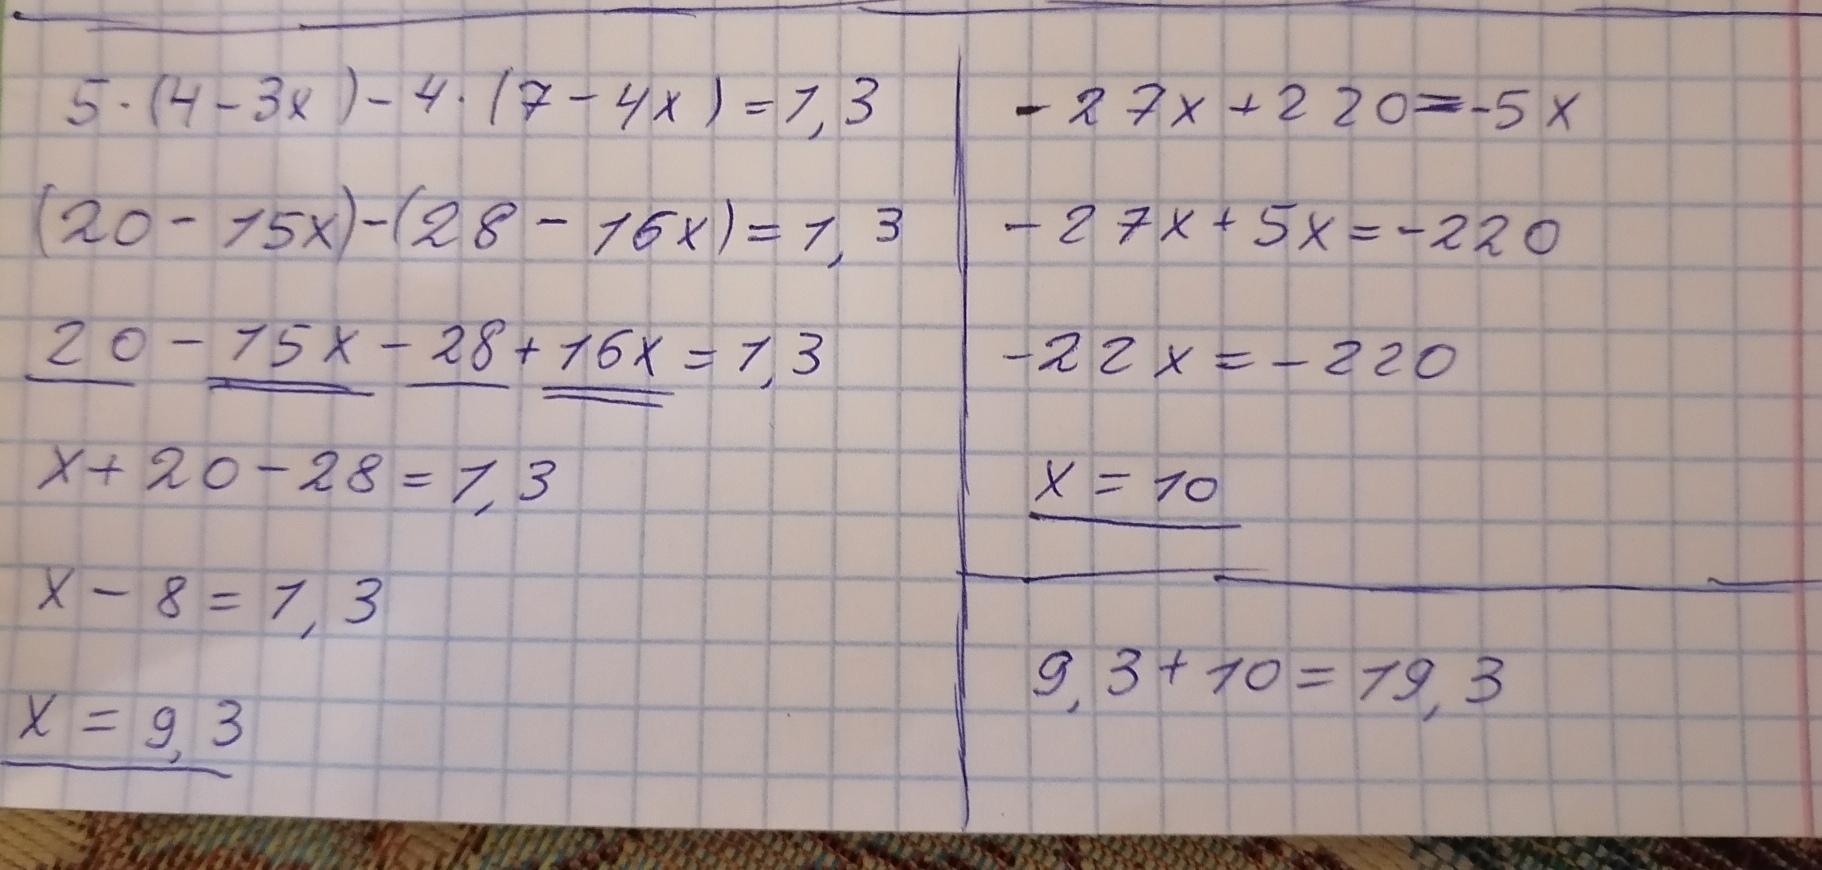 5·(4-3x)-4·(7-4x)=1,3
(20-15x)-(28-16x)=1,3
20-15x-28+16x=1,3
x+20-28=1,3
x-8=1,3
x=9,3
-27x+220=-5x
-27x+5x=-220
-22x=-220
x=10
9,3+10=19,3